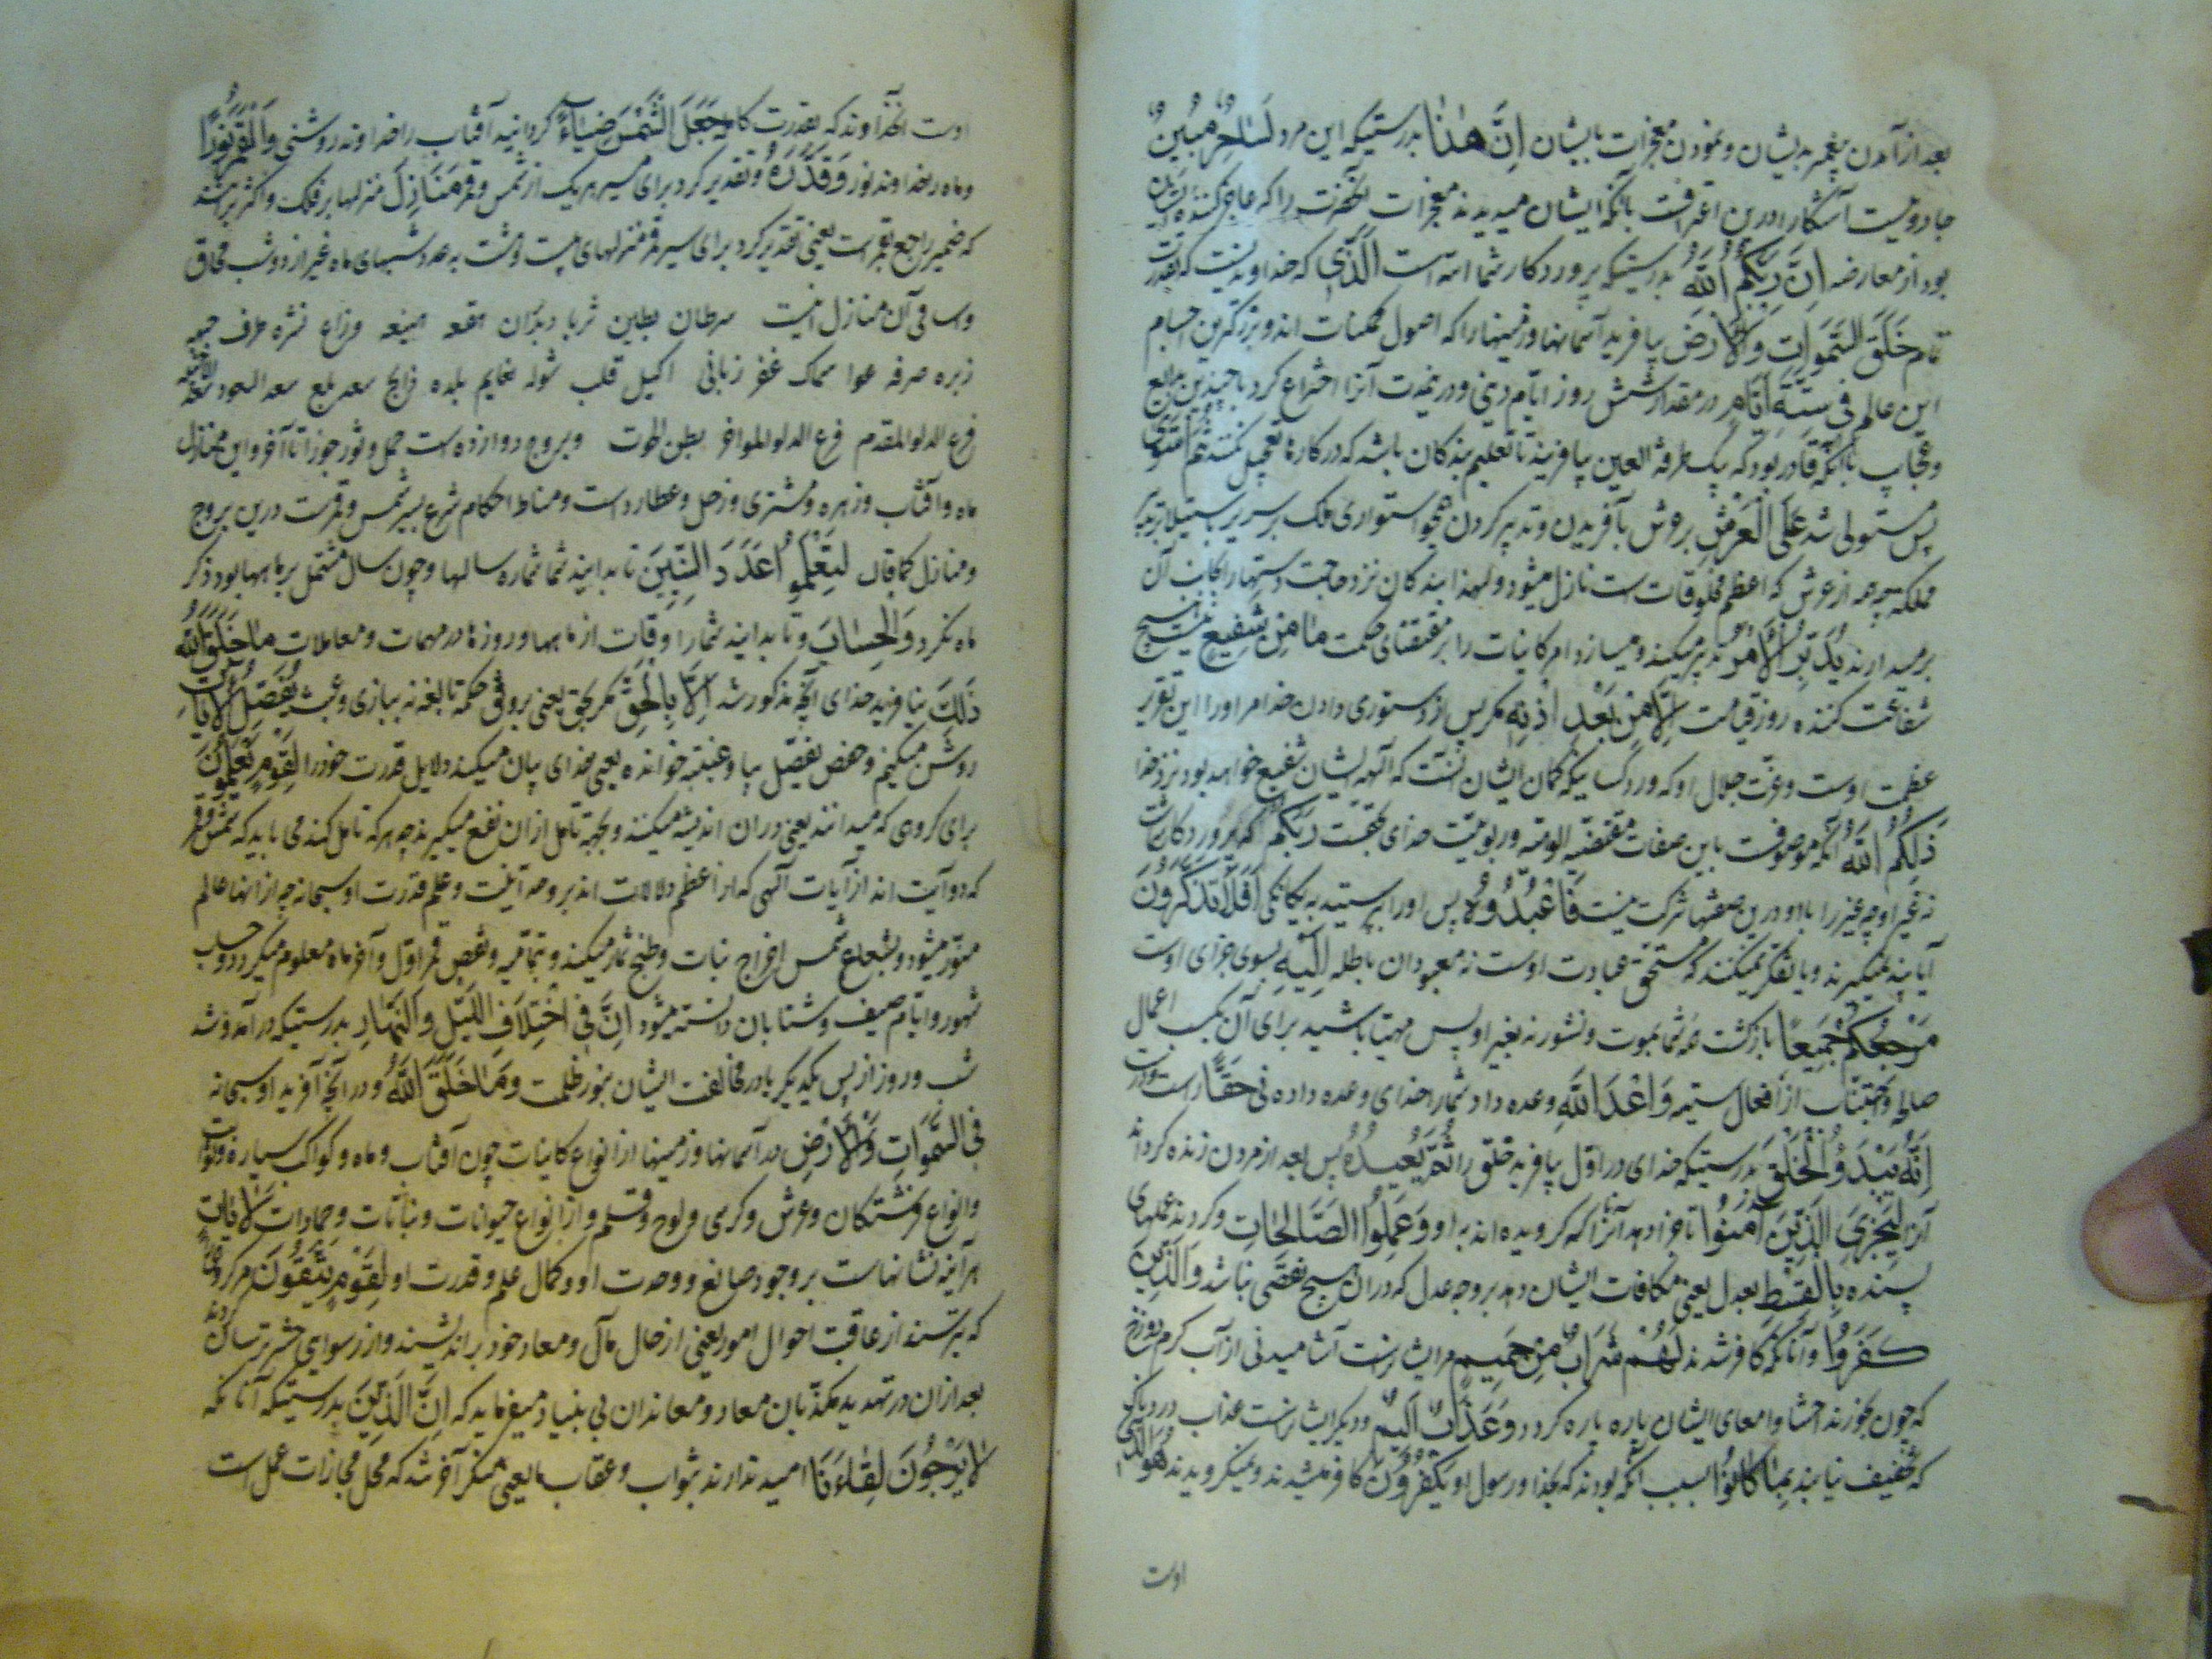 بعد از آمدن پیغمبر بدیشان و نمودن معجزات بایشان اِنَّ هٰذَا بدرستیکه این مرد لَسَاحِرٌ مُبِينٌ
جادوئیست آشکارا و درین اعترافست بآنکه ایشان میدیدند معجزات آنحضرت را که عاجز کننده ایشان
بود از معارضه اِنَّ رَبَّكُمُ اللّٰهُ بدرستیکه پروردگار شما الله است الَّذِي که خداوندیست که بقدرت
تمام خَلَقَ السَّمٰوَاتِ وَالْاَرْضَ بیافرید آسمانها و زمینها را که اصول ممکنات اند و بزرگترین اجسام
این عالم فِي سِتَّةِ اَيَّامٍ در مقدار شش روز از ایّام دنیی و درینمدت آنرا اختراع کرد با چندین بدایع
و عجایب با آنکه قادر بود که بیک طرفة العین بیافریند تا تعلیم بندکان باشد که در کارها تعجیل نکنند ثُمَّ اسْتَوٰى
پس مستولی شد عَلَى الْعَرْشِ بر عرش بآفریدن و تدبیر کردن همچو استواری ملک بر سریر باستیلا
مملکة چه همه از عرش که اعظم مخلوقات است نازل میشود و لهذا بندکان نزد حاجت دستها را بجانب آن
بر میدارند يُدَبِّرُ الْاَمْرَ تدبیر میکند و میسازد امر کاینات را بر مقتضای حکمت مَا مِنْ شَفِيعٍ نیست هیچ
شفاعت کننده روز قیامت اِلَّا مِنْ بَعْدِ اِذْنِهٖ مکر پس از دستوری دادن خدا مر اورا این تقریر
عظمت اوست و عزّت جلال او که و رد کسانیکه کمان ایشان آنست که آلهه ایشان شفیع خواهند بود نزد خدا
ذٰلِكُمُ اللّٰهُ آنکه موصوفست باین صفات مقتضیه الوهیّه و ربوبیّت خدای بحقست رَبُّكُمْ که پروردکار شماست
نه غیر او چه غیر را با او درین صفتها شرکت نیست فَاعْبُدُوهُ پس اورا بپرستید به یکانکی اَفَلَا تَذَكَّرُونَ
آیا پند نمیگیرند و یا تفکر نمیکنند که مستحق عبادت اوست نه معبودان باطله اِلَيْهِ بسوی جزای اوست
مَرْجِعُكُمْ جَمِيعًا بازگشت همه شما بموت و نشور نه بغیر او پس مهیّا باشید برای آن بکسب اعمال
صالحه و اجتناب از افعال سیّئه وَعْدَ اللّٰهِ وعده داد شمارا خدای وعده دادنی حَقًّا راست و درست
اِنَّهُ يَبْدَؤُا الْخَلْقَ بدرستیکه خدای در اوّل بیافریند خلق را ثُمَّ يُعِيدُهُ پس بعد از مردن زنده کرداند
آنرا لِيَجْزِيَ الَّذِينَ اٰمَنُوا تا جزا دهد آنرا که کرویده اند باو وَعَمِلُوا الصَّالِحَاتِ و کردند عملهای
پسنده بِالْقِسْطِ بعدل یعنی مکافات ایشان دهد بر وجه عدل که در ان هیچ نقصی نباشد وَالَّذِينَ
كَفَرُوا و آنانکه کافر شدند لَهُمْ شَرَابٌ مِنْ حَمِيمٍ مر ایشانراست آشامیدنی از آب کرم دوزخ
که چون بخورند احشا و امعای ایشان پاره پاره کردد وَعَذَابٌ اَلِيمٌ و دیگر ایشانراست عذاب دردناک
که تخفیف نیابد بِمَا كَانُوا بسبب آنکه بودند که بخدا و رسول او يَكْفُرُونَ کافر میشدند و نمیکرویدند هُوَ الَّذِي
اوست
اوست آنخداوند که بقدرت کامله جَعَلَ الشَّمْسَ ضِيَاءً کردانید آفتاب را خداوند روشنی وَالْقَمَرَ نُورًا
و ماه را خداوند نور وَقَدَّرَهُ و تقدیر کرد برای مسیر هریک از شمس و قمر مَنَازِلَ منزلها بر فلک و اکثر برانند
که ضمیر راجع بقمر است یعنی تقدیر کرد برای سیر قمر منزلهای بیست و هشت به عدد شبهای ماه غیر از دو شب محاق
و اسافی آن منازل اینست سرطان بطین ثریا دبران هقعه هنعه ذراع نثره طرف جبهه
زبره صرفه عوا سماک غفر زبانی اکلیل قلب شوله نعایم بلده ذابح سعد بلع سعد السعود سعد الاخبیه
فرع الدلو المقدم فرع الدلو المواخر بطن الحوت و بروج دوازده است حمل و ثور جوزا تا آخر و این منازل
ماه و آفتاب و زهره و مشتری و زحل و عطارد است و مناط احکام شرع بسیر شمس و قمرست درین بروج
و منازل کما قال لِتَعْلَمُوا عَدَدَ السِّنِينَ تا بدانید شما شماره سالها و چون سال مشتمل بر ماهها بود ذکر
ماه نکرد وَالْحِسَابَ و تا بدانید شمار اوقات از ماهها و روزها در مهمات و معاملات مَا خَلَقَ اللّٰهُ
ذٰلِكَ نیافرید خدای آنچه مذکور شد اِلَّا بِالْحَقِّ مکر بحق یعنی بر وفق حکمة بالغه نه ببازی و عبث يُفَصِّلُ الْاٰيَاتِ
روشن میکنیم و حفص یفصّل بیاء غیبته خوانده یعنی خدای بیان میکند دلایل قدرت خود را لِقَوْمٍ يَعْلَمُونَ
برای کروهی که میدانند یعنی در ان اندیشه میکنند و بجهة تامل از ان نفع میگیرند چه هر که تامل کند می یابد که شمس و قمر
که دو آیت اند از آیات آلهی که از اعظم دلالات اند بر وحدانیت و علم و قدرت او سبحانه چه از انها عالم
منوّر میشود و بشعاع شمس اخراج نبات و طبخ ثمار میکند و بتمامیه و نقص قمر اوّل و آخر ماه معلوم میکردد و حساب
شهور و ایّام صیف و شتا بان دانسته میشود اِنَّ فِي اخْتِلَافِ اللَّيْلِ وَالنَّهَارِ بدرستیکه در آمد و شد
شب و روز از پس یکدیگر یا در مخالفت ایشان بنور و ظلمت وَمَا خَلَقَ اللّٰهُ و در آنچه آفرید او سبحانه
فِي السَّمٰوَاتِ وَالْاَرْضِ در آسمانها و زمینها از انواع کاینات چون آفتاب و ماه و کواکب سیاره و ثوابت
و انواع فرشتکان و عرش و کرسی و لوح و قلم و از انواع حیوانات و نباتات و جمادات لَاٰيَاتٍ
هر آینه نشانهاست بر وجود صانع و وحدت او و کمال علم و قدرت او لِقَوْمٍ يَتَّقُونَ مر کروهی را
که بترسند از عاقبت احوال امور یعنی از حال مآل و معاد خود براندیشند و از رسوای حشر ترسان
بعد از ان در تهدید مکذّبان معاد و معاندان بی بنیاد میفرماید که اِنَّ الَّذِينَ بدرستیکه آنانکه
لَا يَرْجُونَ لِقَاءَنَا امید ندارند ثواب و عقاب ما یعنی منکر آخرتند که محل مجازات عمل است